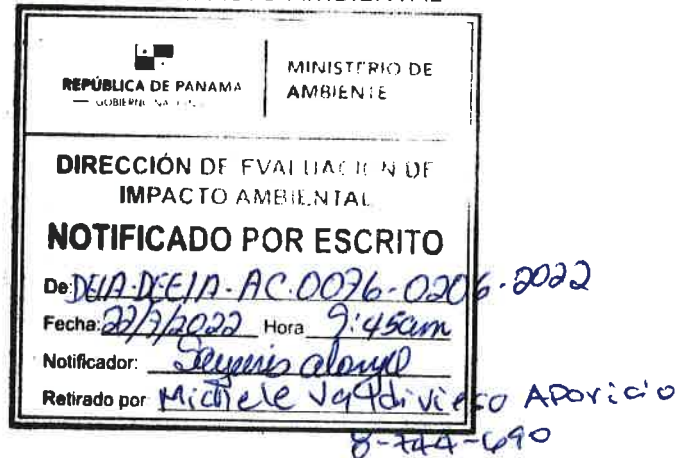 REPÚBLICA DE PANAMA
MINISTERIO DE
AMBIENTE
DIRECCIÓN DE EVALUACIÓN DE
IMPACTO AMBIENTAL
NOTIFICADO POR ESCRITO
De: DEIA-DEEIA-AC-0076-0206-2022
Fecha: 22/7/2022 Hora 9:45am
Notificador:
Retirado por Michele Valdivieso Aparicio
8-744-690